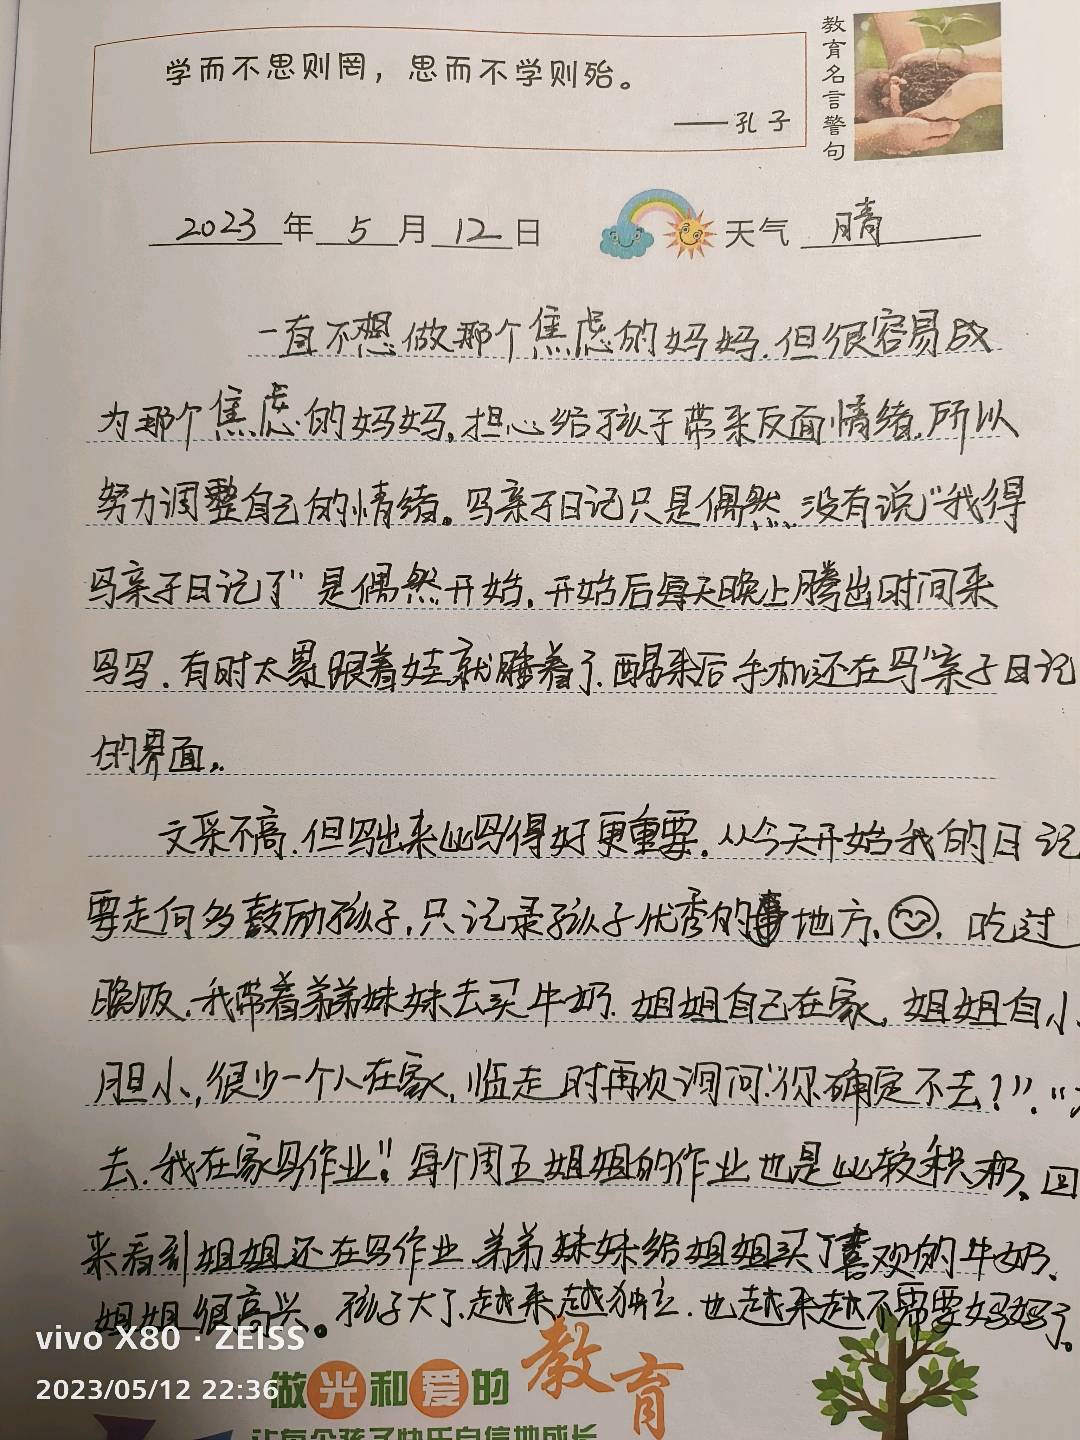 学而不思则罔，思而不学则殆。
——孔子
教育名言警句
2023年5月12日 天气 晴
一直不想做那个焦虑的妈妈.但很容易成
为那个焦虑的妈妈,担心给孩子带来反面情绪.所以
努力调整自己的情绪。写亲子日记只是偶然、没有说“我得
写亲子日记了”是偶然开始.开始后每天晚上腾出时间来
写写.有时太累跟着娃就睡着了.醒来后手机还在写亲子日记
的界面。
文采不高.但写出来比写得好更重要.从今天开始我的日记
要走向多鼓励孩子.只记录孩子优秀的地方、吃过
晚饭.我带着弟弟妹妹去买牛奶.姐姐自己在家,姐姐自小
胆小,很少一个人在家,临走时再次询问:“你确定不去?”.“
去.我在家写作业”.每个周五姐姐的作业也是比较积极、回
来看到姐姐还在写作业.弟弟妹妹给姐姐买了喜欢的牛奶、
姐姐很高兴。孩子大了.越来越独立.也越来越不需要妈妈了。
vivo X80 · ZEISS
2023/05/12 22:36
做光和爱的教育
让每个孩子快乐自信地成长